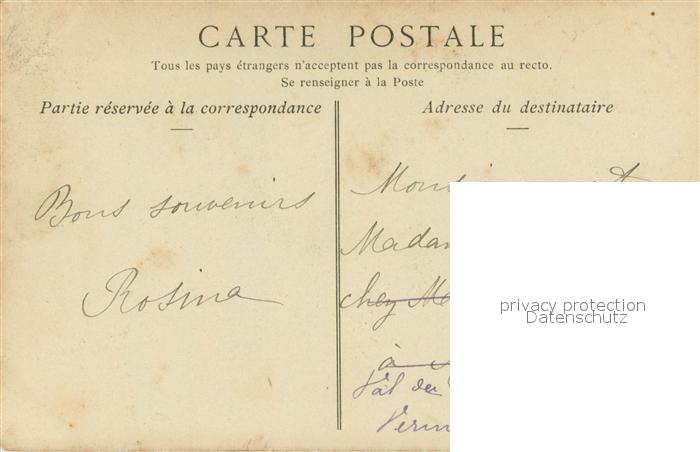 CARTE POSTALE
Tous les pays étrangers n'acceptent pas la correspondance au recto.
Se renseigner à la Poste
Partie réservée à la correspondance
Adresse du destinataire
Bons souvenirs
Rosina
chez
à
privacy protection
Datenschutz